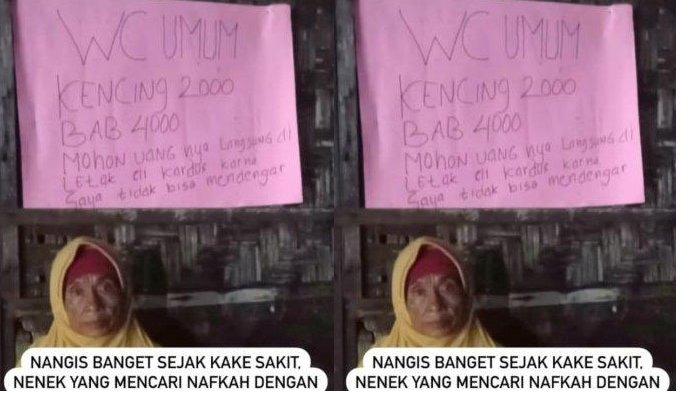 WC UMUM
KENCING 2000
BAB 4000
MOHON UANG nya Langsung di
LEtak di Kardus karna
Saya tidak bisa mendengar
NANGIS BANGET SEJAK KAKE SAKIT,
NENEK YANG MENCARI NAFKAH DENGAN
WC UMUM
KENCING 2000
BAB 4000
MOHON UANG nya Langsung di
LEtak di Kardus karna
Saya tidak bisa mendengar
NANGIS BANGET SEJAK KAKE SAKIT,
NENEK YANG MENCARI NAFKAH DENGAN